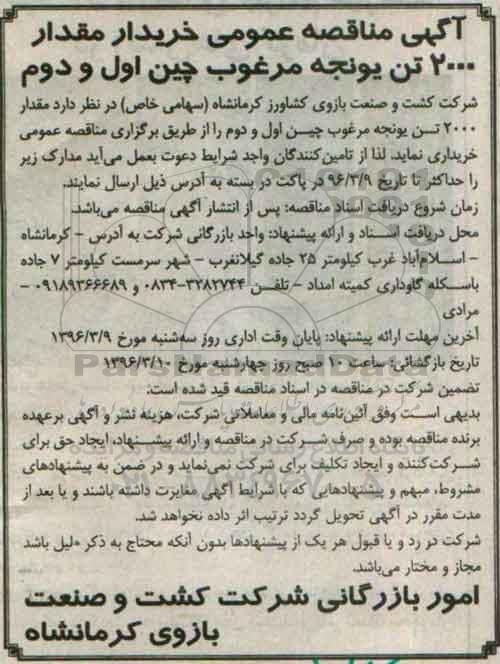 آگهی مناقصه عمومی خریدار مقدار
۲۰۰۰ تن یونجه مرغوب چین اول و دوم
شرکت کشت و صنعت بازوی کشاورز کرمانشاه (سهامی خاص) در نظر دارد مقدار
۲۰۰۰ تن یونجه مرغوب چین اول و دوم را از طریق برگزاری مناقصه عمومی
خریداری نماید. لذا از تامین‌کنندگان واجد شرایط دعوت بعمل می‌آید مدارک زیر
را حداکثر تا تاریخ ۹۶/۳/۹ در پاکت در بسته به آدرس ذیل ارسال نمایند.
زمان شروع دریافت اسناد مناقصه: پس از انتشار آگهی مناقصه می‌باشد.
محل دریافت اسناد و ارائه پیشنهاد: واحد بازرگانی شرکت به آدرس - کرمانشاه
- اسلام‌آباد غرب کیلومتر ۲۵ جاده گیلانغرب - شهر سرمست کیلومتر ۷ جاده
باسکله گاوداری کمیته امداد - تلفن ۳۲۸۲۷۴۴-۰۸۳۴ و ۰۹۱۸۹۳۶۶۶۸۹ -
مرادی
آخرین مهلت ارائه پیشنهاد: پایان وقت اداری روز سه‌شنبه مورخ ۱۳۹۶/۳/۹
تاریخ بازگشائی: ساعت ۱۰ صبح روز چهارشنبه مورخ ۱۳۹۶/۳/۱۰
تضمین شرکت در مناقصه در اسناد مناقصه قید شده است.
بدیهی است وفق آئین‌نامه مالی و معاملاتی شرکت، هزینه نشر و آگهی برعهده
برنده مناقصه بوده و صرف شرکت در مناقصه و ارائه پیشنهاد، ایجاد حق برای
شرکت‌کننده و ایجاد تکلیف برای شرکت نمی‌نماید و در ضمن به پیشنهادهای
مشروط، مبهم و پیشنهادهایی که با شرایط آگهی مغایرت داشته باشند و یا بعد از
مدت مقرر در آگهی تحویل گردد ترتیب اثر داده نخواهد شد.
شرکت در رد و یا قبول هر یک از پیشنهادها بدون آنکه محتاج به ذکر دلیل باشد
مجاز و مختار می‌باشد.
امور بازرگانی شرکت کشت و صنعت
بازوی کرمانشاه